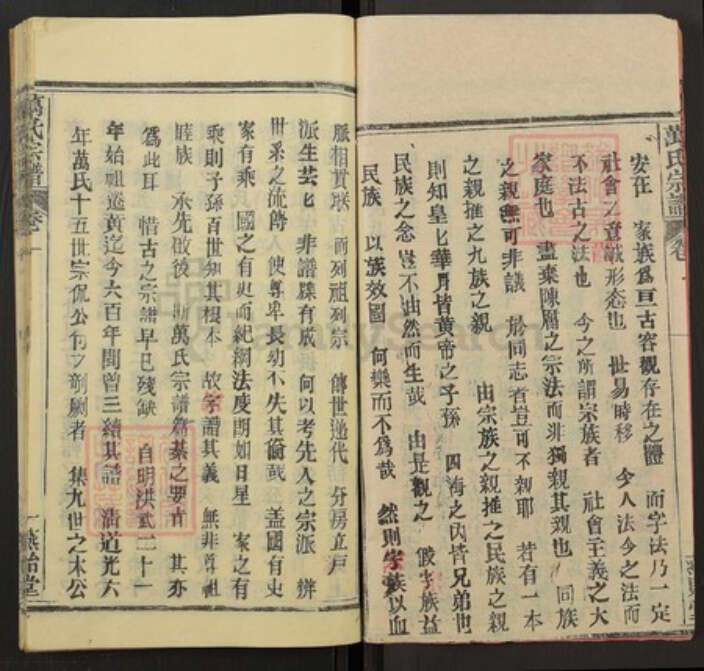 萬氏宗譜 卷一
安在 家族爲亘古客觀存在之體 而字法乃一定
社會之意識形态也 世易時移 今人法今之法而
不法古之法也 今之所謂宗族者 社會主義之大
家庭也 盡棄陳腐之宗法而非獨親其親也 同族
之親無可非議 於同志者豈可不親耶 若有一本
之親推之九族之親 由宗族之親推之民族之親
則知皇匕華冑皆黄帝之子孫 四海之内皆兄弟也
民族之念豈不油然而生哉 由是觀之 假宗族益
民族 以族效國 何樂而不爲哉 然則宗族以血
脈相貫联 而列祖列宗 傳世递代 分房立戶
派生芸匕 非譜牒有成 何以考先人之宗派 辨
世系之流傳 使尊卑長幼不失其倫哉 盖國有史
家有乘 國之有史而紀綱法度期如日星 家之有
乘則子孫百世知其根本 故宗譜其義 無非尊祖
睦族 承先啟後 萬氏宗譜篇纂之要旨 其亦
爲此耳 惜古之宗譜早已残缺 自明洪武二十一
年始祖遷黄迄今六百年間曾三續其譜 清道光六
年萬氏十五世宗侃公 集九世之木公
萬氏宗譜 卷一
燕怡堂